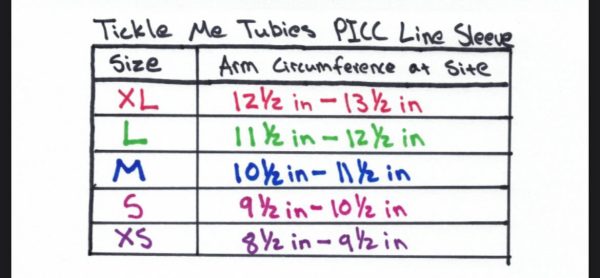 Tickle Me Tubies PICC Line Sleeve
Size Arm Circumference at Site
XL 12½ in - 13½ in
L 11½ in - 12½ in
M 10½ in - 11½ in
S 9½ in - 10½ in
XS 8½ in - 9½ in